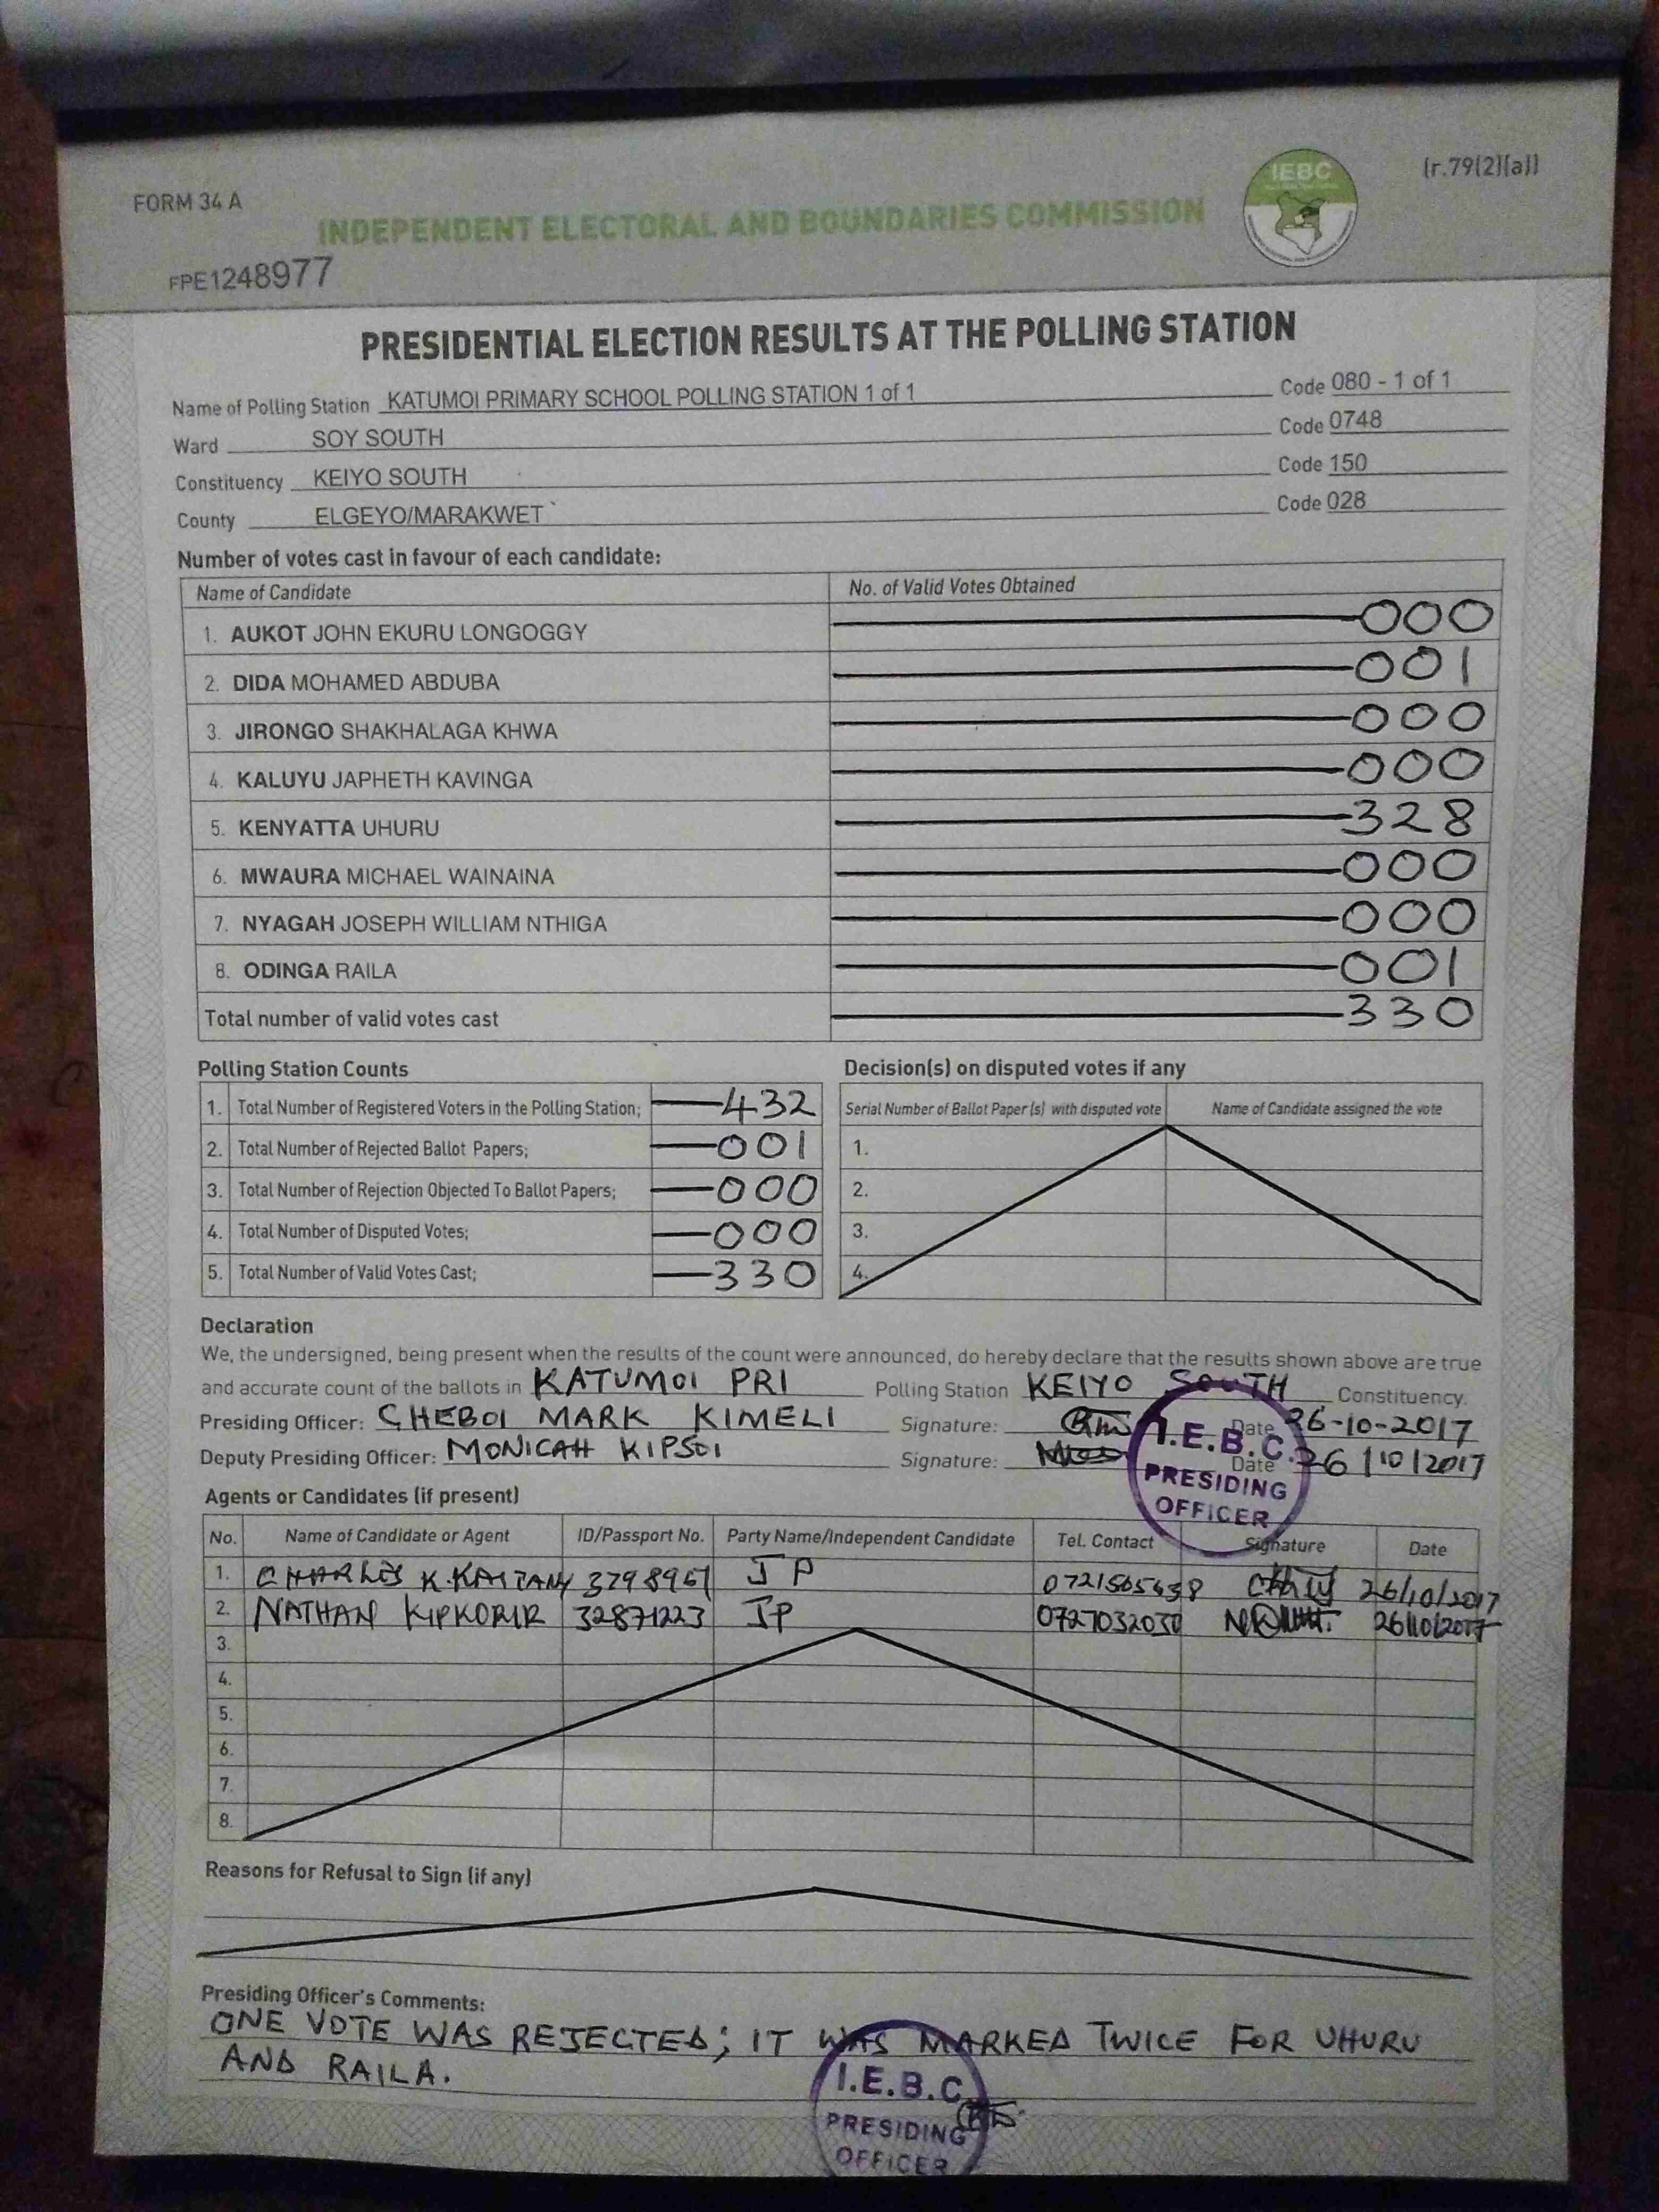 IEBC
(r.79(2)(a))
FORM 34 A
INDEPENDENT ELECTORAL AND BOUNDARIES COMMISSION
FPE1248977
PRESIDENTIAL ELECTION RESULTS AT THE POLLING STATION
Name of Polling Station KATUMOI PRIMARY SCHOOL POLLING STATION 1 of 1 Code 080 - 1 of 1
Ward SOY SOUTH Code 0748
Constituency KEIYO SOUTH Code 150
County ELGEYO/MARAKWET Code 028
Number of votes cast in favour of each candidate:
Name of Candidate No. of Valid Votes Obtained
1. AUKOT JOHN EKURU LONGOGGY 000
2. DIDA MOHAMED ABDUBA 001
3. JIRONGO SHAKHALAGA KHWA 000
4. KALUYU JAPHETH KAVINGA 000
5. KENYATTA UHURU 328
6. MWAURA MICHAEL WAINAINA 000
7. NYAGAH JOSEPH WILLIAM NTHIGA 000
8. ODINGA RAILA 001
Total number of valid votes cast 330
Polling Station Counts
1. Total Number of Registered Voters in the Polling Station; 432
2. Total Number of Rejected Ballot Papers; 001
3. Total Number of Rejection Objected To Ballot Papers; 000
4. Total Number of Disputed Votes; 000
5. Total Number of Valid Votes Cast; 330
Decision(s) on disputed votes if any
Serial Number of Ballot Paper (s) with disputed vote Name of Candidate assigned the vote
1.
2.
3.
4.
Declaration
We, the undersigned, being present when the results of the count were announced, do hereby declare that the results shown above are true
and accurate count of the ballots in KATUMOI PRI Polling Station KEIYO SOUTH Constituency.
Presiding Officer: CHEBOI MARK KIMELI Signature: Date 26-10-2017
Deputy Presiding Officer: MONICAH KIPSOI Signature: Date 26/10/2017
I.E.B.C.
PRESIDING
OFFICER
Agents or Candidates (if present)
No. Name of Candidate or Agent ID/Passport No. Party Name/Independent Candidate Tel. Contact Signature Date
1. CHARLES K. KAITANY JP 26/10/2017
2. NATHAN KIPKORIR 32871223 JP 0727032030 26/10/2017
3.
4.
5.
6.
7.
8.
Reasons for Refusal to Sign (if any)
Presiding Officer's Comments:
ONE VOTE WAS REJECTED; IT WAS MARKED TWICE FOR UHURU
AND RAILA.
I.E.B.C
PRESIDING
OFFICER